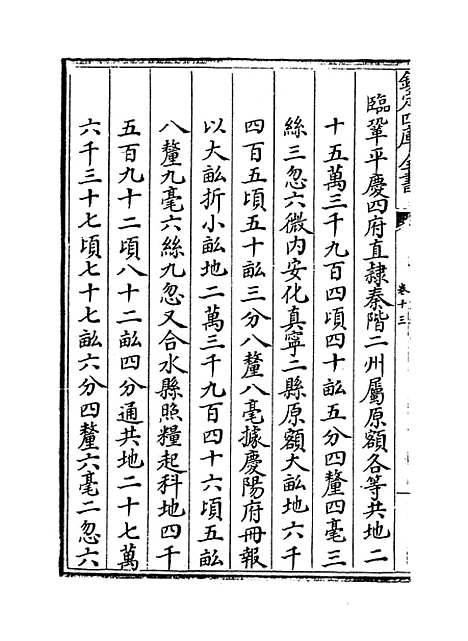 欽定四庫全書
卷十三
臨鞏平慶四府直隸秦階二州屬原額各等共地二
十五萬三千九百四頃四十畝五分四釐四毫三
絲三忽六微内安化真寧二縣原額大畝地六千
四百五頃五十畝三分八釐八毫據慶陽府冊報
以大畝折小畝地二萬三千九百四十六頃五畝
八釐九毫六絲九忽又合水縣照糧起科地四千
五百九十二頃八十二畝四分通共地二十七萬
六千三十七頃七十七畝六分四釐六毫二忽六